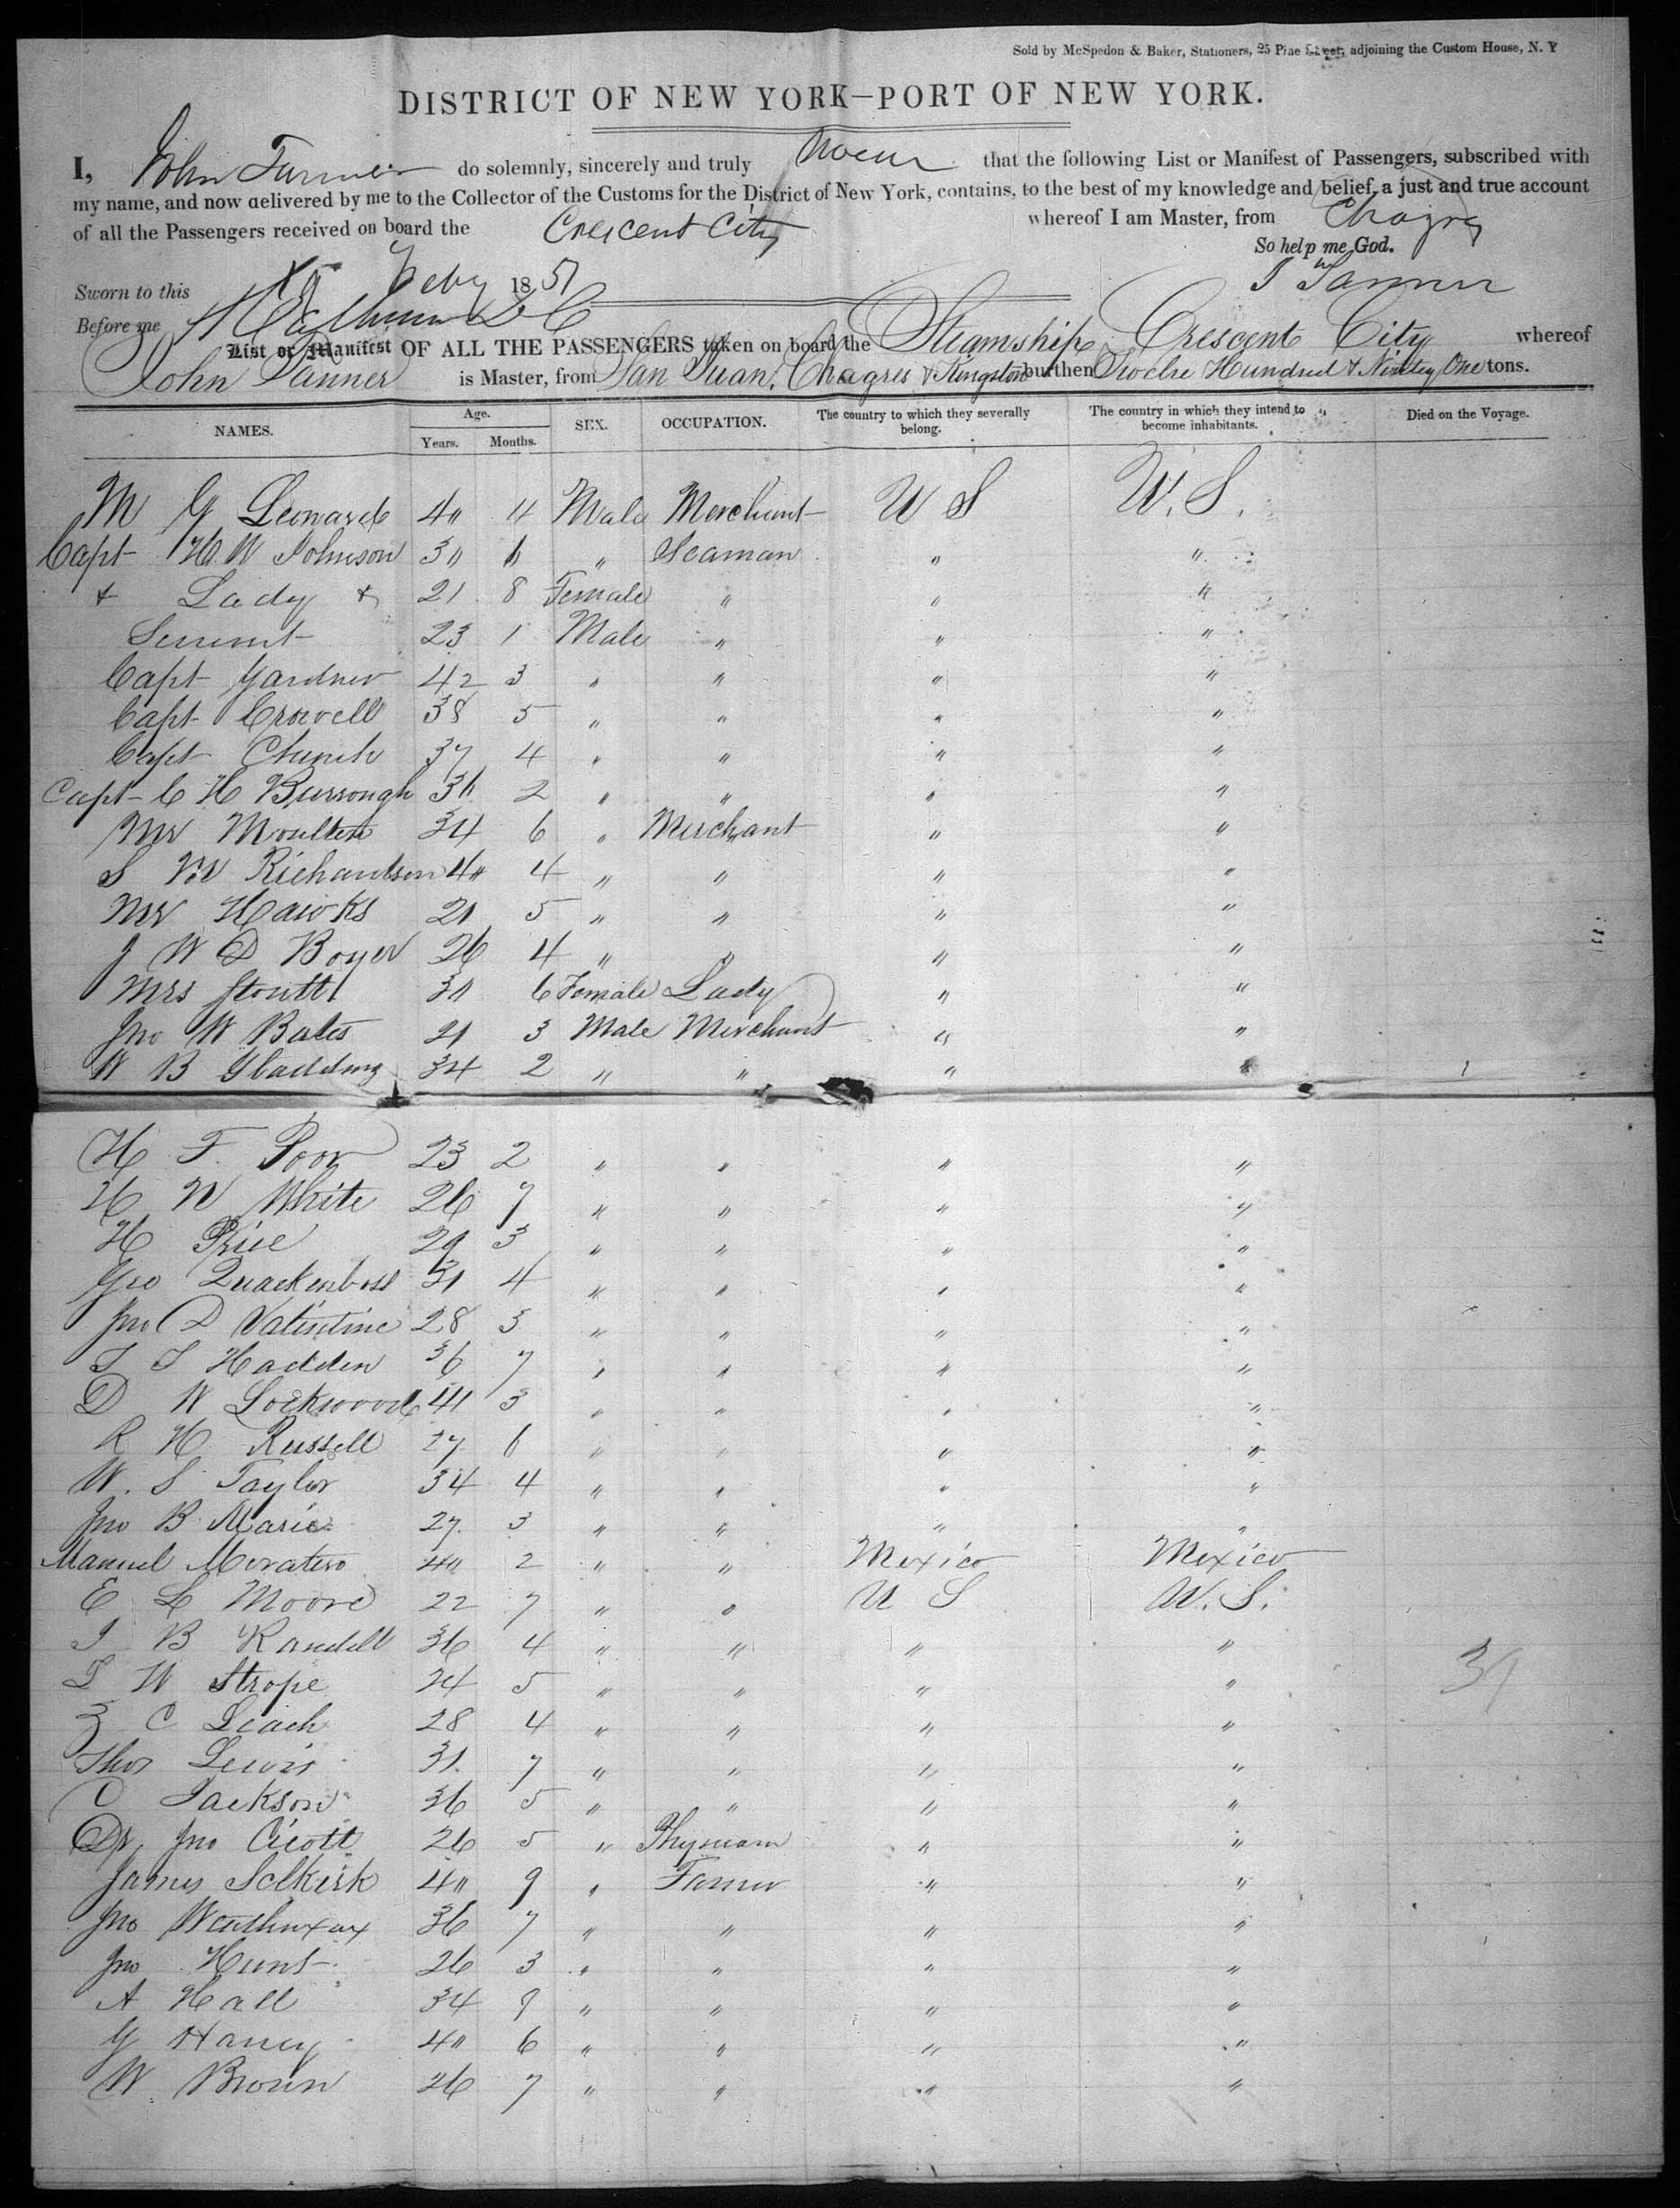 Sold by McSpedon & Baker, Stationers, 25 Pine Street, adjoining the Custom House, N. Y
DISTRICT OF NEW YORK—PORT OF NEW YORK.
I, John Tanner do solemnly, sincerely and truly swear that the following List or Manifest of Passengers, subscribed with
my name, and now delivered by me to the Collector of the Customs for the District of New York, contains, to the best of my knowledge and belief, a just and true account
of all the Passengers received on board the Crescent City whereof I am Master, from Chagres
So help me God.
Sworn to this Feby 1851 J Tanner
Before me
List or Manifest OF ALL THE PASSENGERS taken on board the Steamship Crescent City whereof
John Tanner is Master, from San Juan, Chagres & Kingston burthen Twelve Hundred & Ninety One tons.
NAMES. Age. Years. Months. SEX. OCCUPATION. The country to which they severally belong. The country in which they intend to become inhabitants. Died on the Voyage.
M G Leonard 40 4 Male Merchant U S U.S.
Capt H. W Johnson 30 6 " Seaman " "
+ Lady + 21 8 Female " " "
Servant 23 1 Male " " "
Capt Gardner 42 3 " " " "
Capt Crowell 38 5 " " " "
Capt Church 37 4 " " " "
Capt C H Burrough 30 2 " " " "
Mr Moulten 34 6 " Merchant " "
S W Richardson 40 4 " " " "
Mr Hawks 21 5 " " " "
J W D Boyer 26 4 " " " "
Mrs Stoutt 30 6 Female Lady " "
Jno W Bates 21 3 Male Merchant " "
W B Gladding 34 2 " " " "
H F. Poor 23 2 " " " "
H W White 26 7 " " " "
H Price 29 3 " " " "
Geo Quackenboss 31 4 " " " "
Jno D Valintine 28 3 " " " "
S S Hadden 36 7 " " " "
D W Lockwood 41 3 " " " "
R H Russell 27 6 " " " "
W. S Taylor 34 4 " " " "
Jno B Marie 27 3 " " " "
Manuel Moratero 40 2 " " Mexico Mexico
E L Moore 22 7 " " U S U.S.
J B Randell 36 4 " " " "
T W Strope 24 5 " " " "
Z C Leach 28 4 " " " "
39
Thos Lewis 31 7 " " " "
C Jackson 36 5 " " " "
Dr Jno Cicott 26 5 " Physician " "
James Selkirk 40 9 " Farmer " "
Jno 36 7 " " " "
Jno Hunt 26 3 " " " "
A Hall 34 9 " " " "
G Haney 40 6 " " " "
W Brown 26 7 " " " "